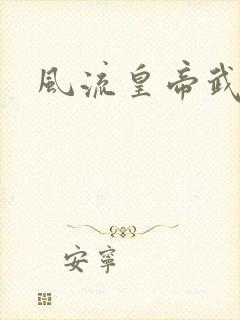 風流皇帝武
安寧